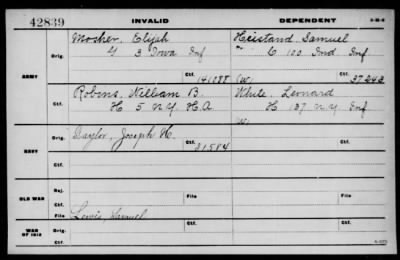 42839
INVALID
DEPENDENT
3-25-6
ARMY
Orig.
Mosher, Elijah
G 3 Iowa Inf
Ctf.
141088
Heistand Samuel
C 100 Ind Inf
W.
Ctf.
37243
Robins, William B.
H 5 N.Y. H.A.
Ctf.
White, Leonard
H 137 N.Y. Inf
W.
Ctf.
NAVY
Orig.
Taylor, Joseph H.
Ctf.
31584
OLD WAR
Rej.
Ctf.
File
File
WAR OF 1812
Lewis, Samuel
Orig.
Ctf.
Ctf.